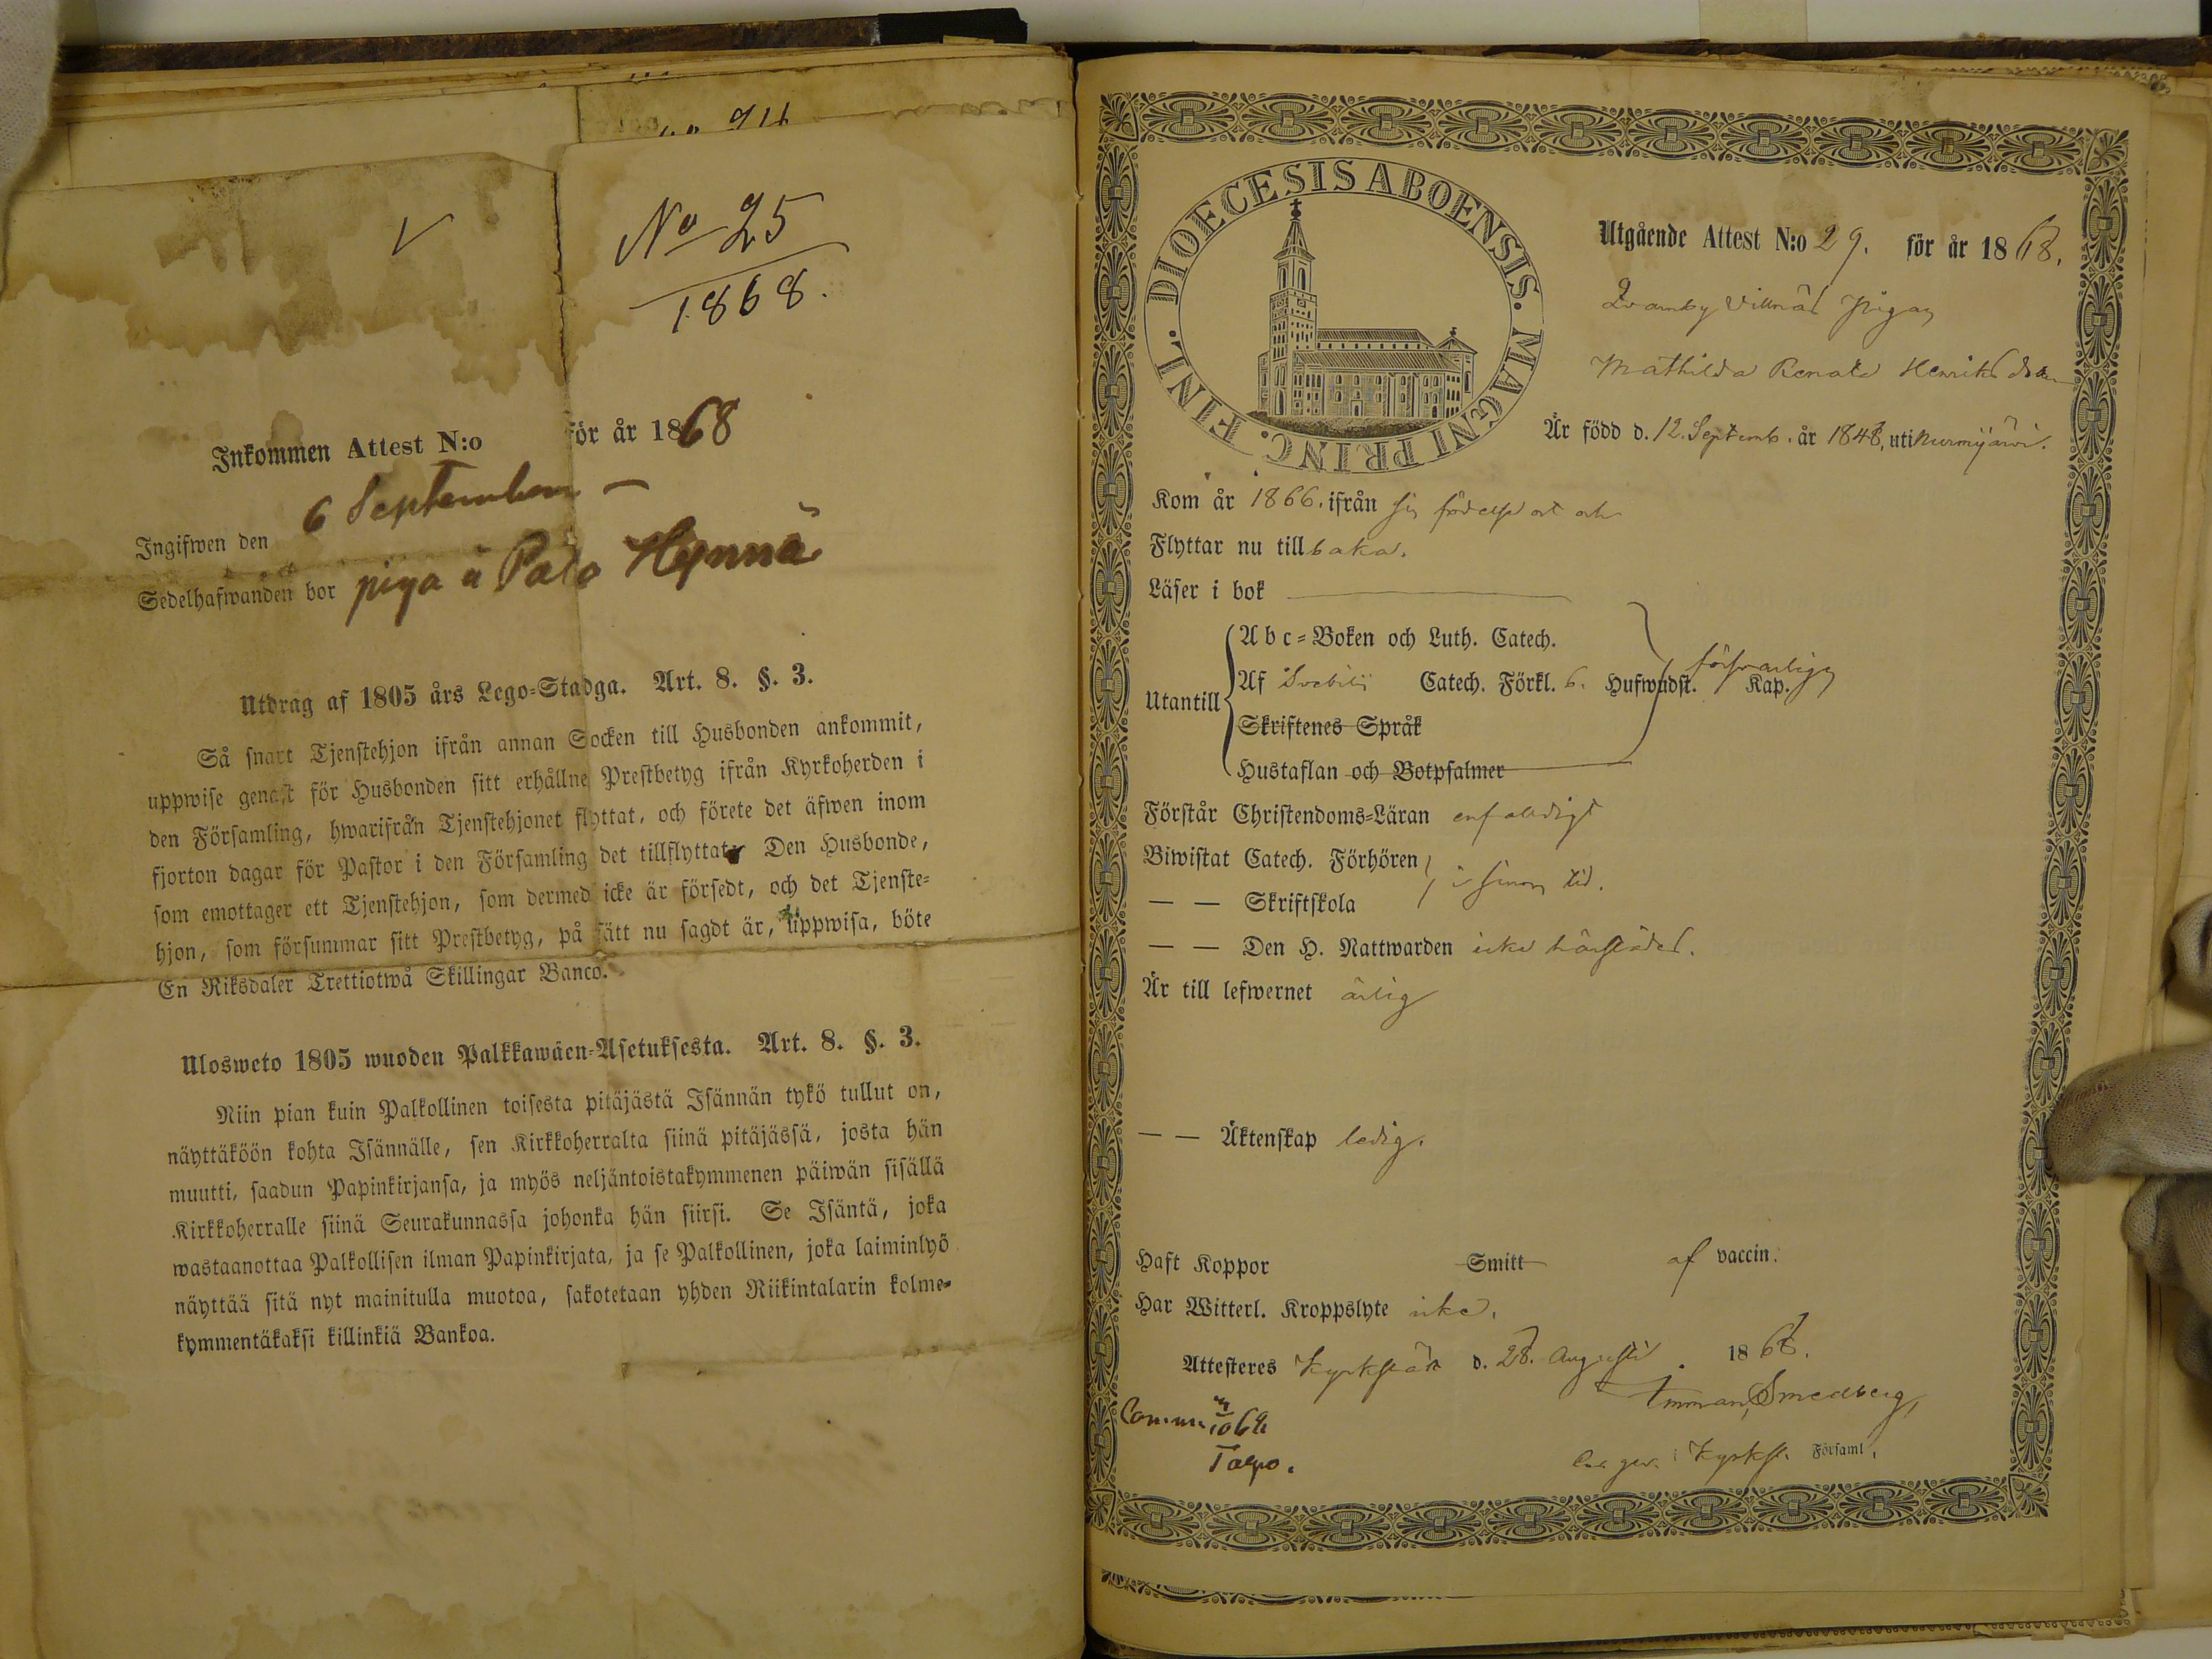 No 25
1868.
Inkommen Attest N:o för år 1868
Ingifwen den 6 September
Sedelhafwanden bor piga å Palo Hynnä
Utdrag af 1805 års Lego-Stadga. Art. 8. §. 3.
Så snart Tjenstehjon ifrån annan Socken till Husbonden ankommit,
uppwise genast för Husbonden sitt erhållne Prestbetyg ifrån Kyrkoherden i
den Församling, hwarifrån Tjenstehjonet flyttat, och förete det äfwen inom
fjorton dagar för Pastor i den Församling det tillflyttat. Den Husbonde,
som emottager ett Tjenstehjon, som dermed icke är försedt, och det Tjenste-
hjon, som försummar sitt Prestbetyg, på sätt nu sagdt är, uppwisa, böte
En Riksdaler Trettiotwå Skillingar Banco.
Ulosweto 1805 wuoden Palkkawäen-Asetuksesta. Art. 8. §. 3.
Niin pian kuin Palkollinen toisesta pitäjästä Isännän tykö tullut on,
näyttäköön kohta Isännälle, sen Kirkkoherralta siinä pitäjässä, josta hän
muutti, saadun Papinkirjansa, ja myös neljäntoistakymmenen päiwän sisällä
Kirkkoherralle siinä Seurakunnassa johonka hän siirsi. Se Isäntä, joka
wastaanottaa Palkollisen ilman Papinkirjata, ja se Palkollinen, joka laiminlyö
näyttää sitä nyt mainitulla muotoa, sakotetaan yhden Riikintalarin kolme-
kymmentäkaksi killinkiä Bankoa.
DIOECESIS ABOENSIS. MAGNI PRINC. FINL.
Utgående Attest N:o 29. för år 1868.
Qvarnby Villnäs Pigan
Mathilda Renata Henriksdr
Är född d. 12. Septemb. år 1848, uti Nurmijärvi.
Kom år 1866. ifrån sin födelseort och
Flyttar nu tillbaka.
Läser i bok
Utantill
Abc-Boken och Luth. Catech.
Af Svebilii Catech. Förkl. 6. Hufwudst. Kap. försvarligen
Skriftenes Språk
Hustaflan och Botpsalmer
Förstår Christendoms-Läran enfaldigt
Biwistat Catech. Förhören
— — Skriftskola i sinom tid.
— — Den H. Nattwarden icke härstädes.
Är till lefwernet ärlig
— — Äktenskap ledig.
Haft Koppor Smitt af vaccin.
Har Witterl. Kroppslyte icke.
Attesteres Kyrkslätt d. 28. Augusti 1868.
Emman. Smedberg,
Commun. 10 68
i Kyrksl. Församl.